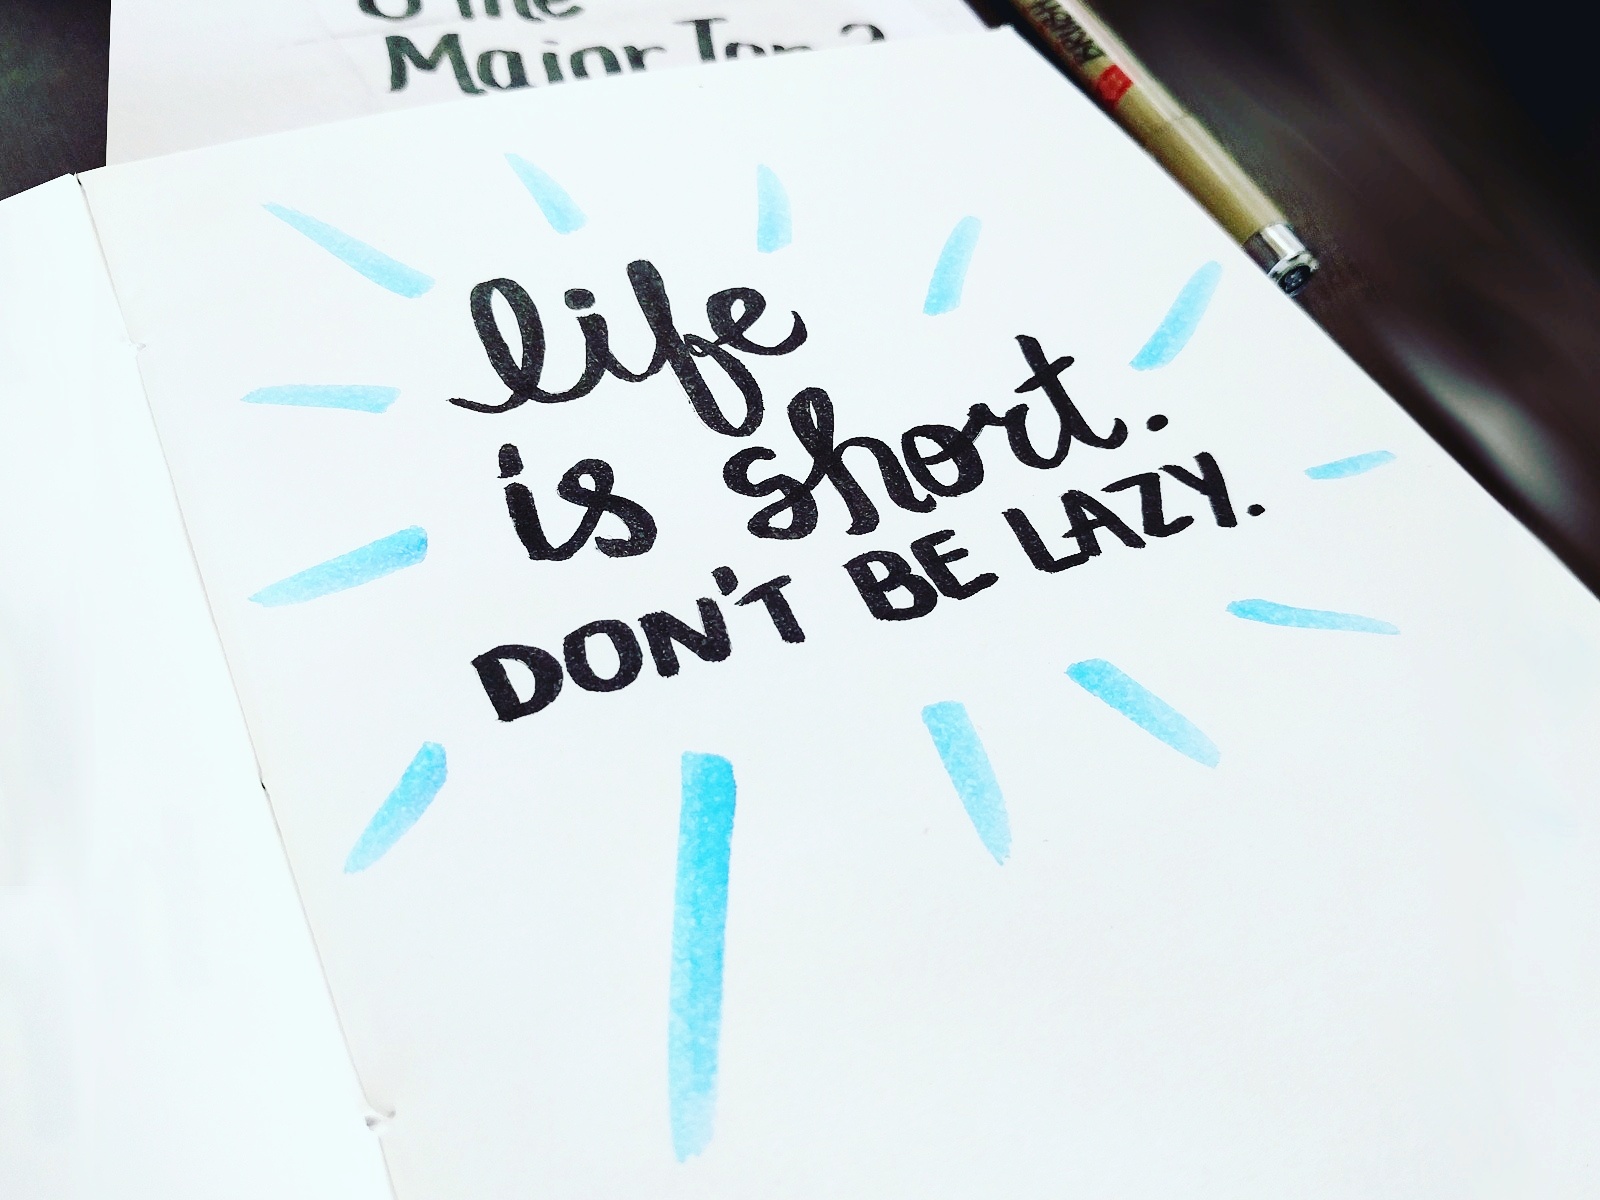 Major
BRUSH
life
is short.
DON'T BE LAZY.